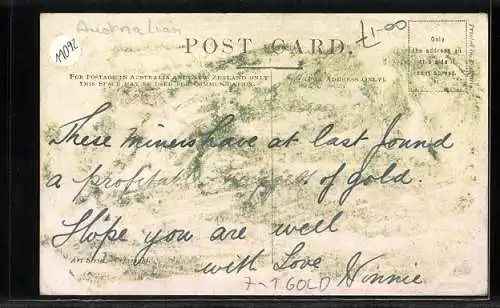 Australian
11092
7-00
POST CARD.
Only the address on this side if sent abroad.
FOR POSTAGE IN AUSTRALIA AND NEW ZEALAND ONLY
THIS SPACE MAY BE USED FOR COMMUNICATION.
(FOR ADDRESS ONLY).
These miners have at last found
a profitable of gold.
Hope you are well
with Love Nonnie
7-1 GOLD